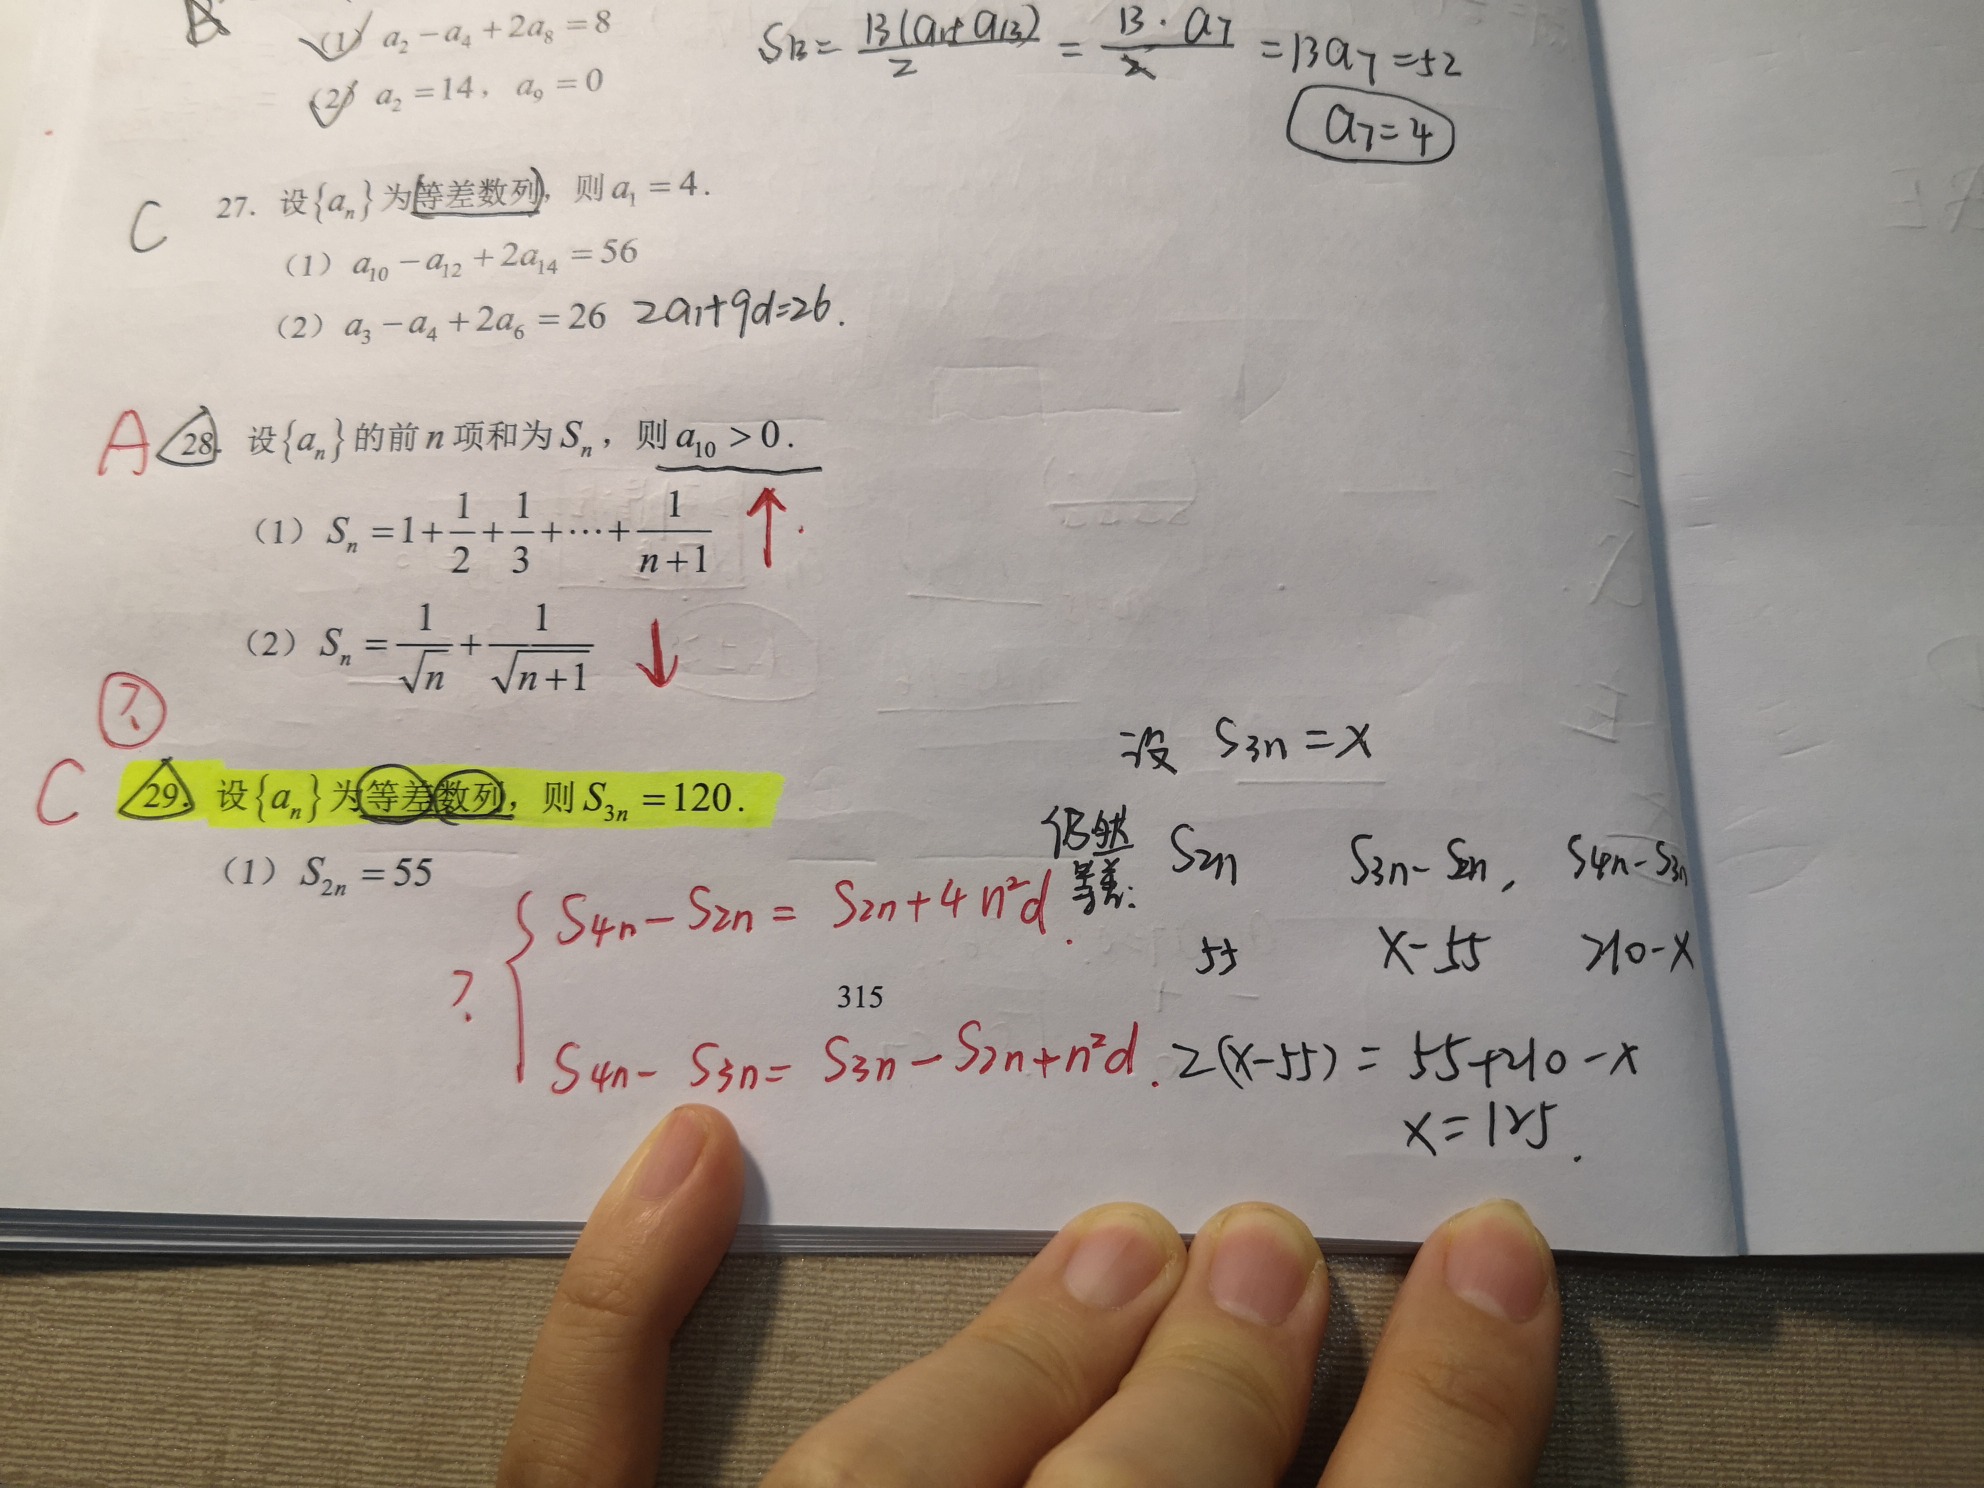 B
(1) a₂ − a₄ + 2a₈ = 8
(2) a₂ = 14, a₉ = 0
S₁₃ = 13(a₁+a₁₃)/2 = 13·a₇/2 = 13a₇ = 52
a₇ = 4
C 27. 设{aₙ}为等差数列, 则 a₁ = 4.
(1) a₁₀ − a₁₂ + 2a₁₄ = 56
(2) a₃ − a₄ + 2a₆ = 26 2a₁+9d=26.
A 28. 设{aₙ}的前 n 项和为 Sₙ, 则 a₁₀ > 0.
(1) Sₙ = 1 + 1/2 + 1/3 + ⋯ + 1/(n+1) ↑
(2) Sₙ = 1/√n + 1/√(n+1) ↓
?
C 29. 设{aₙ}为等差数列, 则 S₃ₙ = 120.
(1) S₂ₙ = 55
? { S₄ₙ − S₂ₙ = S₂ₙ + 4n²d.
S₄ₙ − S₃ₙ = S₃ₙ − S₂ₙ + n²d.
设 S₃ₙ = x
仍然等差: S₂ₙ S₃ₙ − S₂ₙ, S₄ₙ − S₃ₙ
55 x−55 210−x
2(x−55) = 55+210−x
x = 125.
315